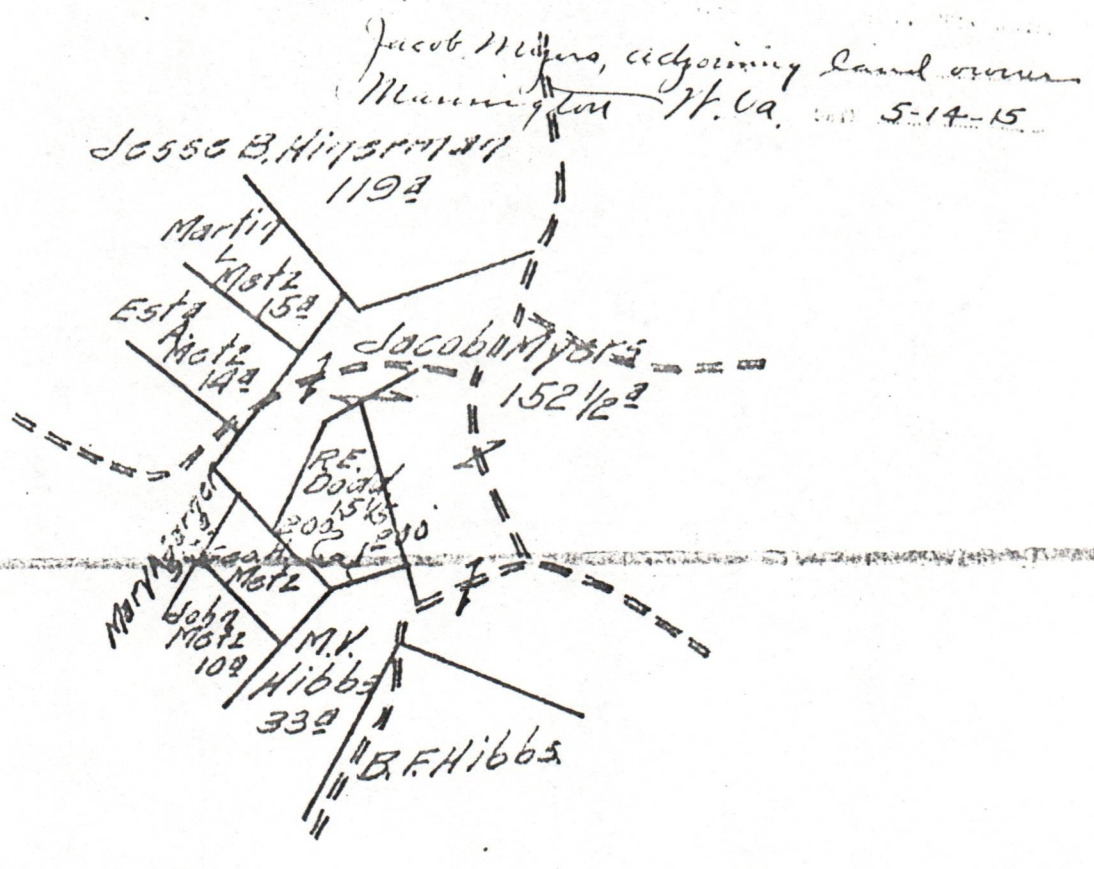 Jacob Myers, adjoining land owner
Mannington W. Va. 5-14-15
Jesse B. Hinerman
119a
Martin
L
Metz
15a
Esta
A.
Metz
14a
Jacob Myers
152 1/2a
R.E.
Dodd
15 1/5
200
Mary
Metz
John
Metz
10a
M.V.
Hibbs
33a
B.F. Hibbs